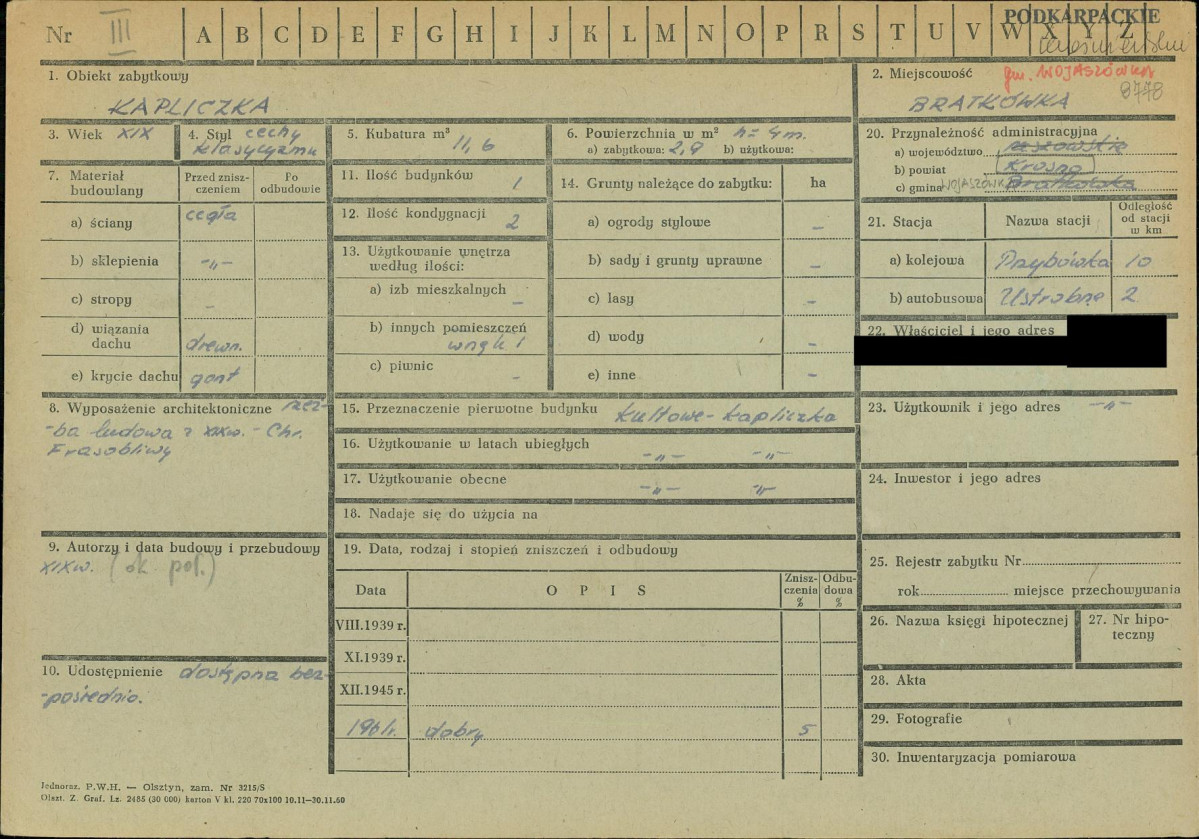 Nr III A B C D E F G H I J K L M N O P R S T U V W X Y Z
PODKARPACKIE
1. Obiekt zabytkowy
KAPLICZKA
2. Miejscowość gm. WOJASZÓWKA
BRATKÓWKA 8778
3. Wiek XIX
4. Styl cechy
klasycyzmu
5. Kubatura m³
11,6
6. Powierzchnia w m² h = 4 m.
a) zabytkowa: 2,9 b) użytkowa:
20. Przynależność administracyjna
a) województwo rzeszowskie
b) powiat Krosno
c) gmina WOJASZÓWKA Bratkówka
7. Materiał budowlany
Przed zniszczeniem
Po odbudowie
a) ściany cegła
b) sklepienia -„-
c) stropy -
d) wiązania dachu drewn.
e) krycie dachu gont
11. Ilość budynków 1
12. Ilość kondygnacji 2
13. Użytkowanie wnętrza
według ilości:
a) izb mieszkalnych -
b) innych pomieszczeń
wnęk 1
c) piwnic -
14. Grunty należące do zabytku: ha
a) ogrody stylowe -
b) sady i grunty uprawne -
c) lasy -
d) wody -
e) inne -
21. Stacja Nazwa stacji Odległość od stacji w km
a) kolejowa Przybówka 10
b) autobusowa Ustrobna 2
22. Właściciel i jego adres
8. Wyposażenie architektoniczne rzeź-
-ba ludowa z XIX w. - Chr.
Frasobliwy
15. Przeznaczenie pierwotne budynku kultowe - kapliczka
16. Użytkowanie w latach ubiegłych -„- -„-
17. Użytkowanie obecne -„- -„-
18. Nadaje się do użycia na
23. Użytkownik i jego adres -„-
24. Inwestor i jego adres
9. Autorzy i data budowy i przebudowy
XIX w. (ok. poł.)
19. Data, rodzaj i stopień zniszczeń i odbudowy
Data OPIS Zniszczenia % Odbudowa %
VIII.1939 r.
XI.1939 r.
XII.1945 r.
1961 r. dobry 5
25. Rejestr zabytku Nr
rok miejsce przechowywania
26. Nazwa księgi hipotecznej
27. Nr hipoteczny
10. Udostępnienie dostępna bez-
-pośrednio.
28. Akta
29. Fotografie
30. Inwentaryzacja pomiarowa
Jednoraz. P.W.H. — Olsztyn, zam. Nr 3215/S
Olszt. Z. Graf. Lz. 2485 (30 000) karton V kl. 220 70x100 10.11—30.11.60